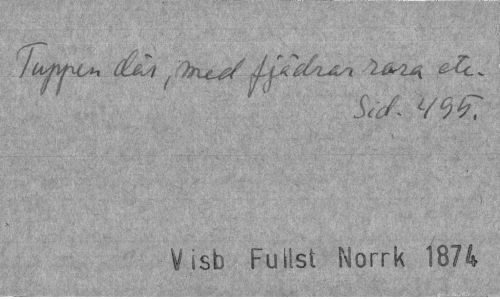 Tuppen där, med fjädrar rara etc.
Sid. 495.
Visb Fullst Norrk 1874